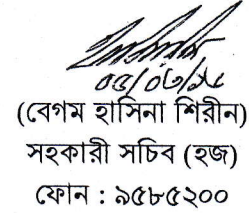 (বেগম হাসিনা শিরীন)
সহকারী সচিব (হজ)
ফোন : ৯৫৮৫২০০